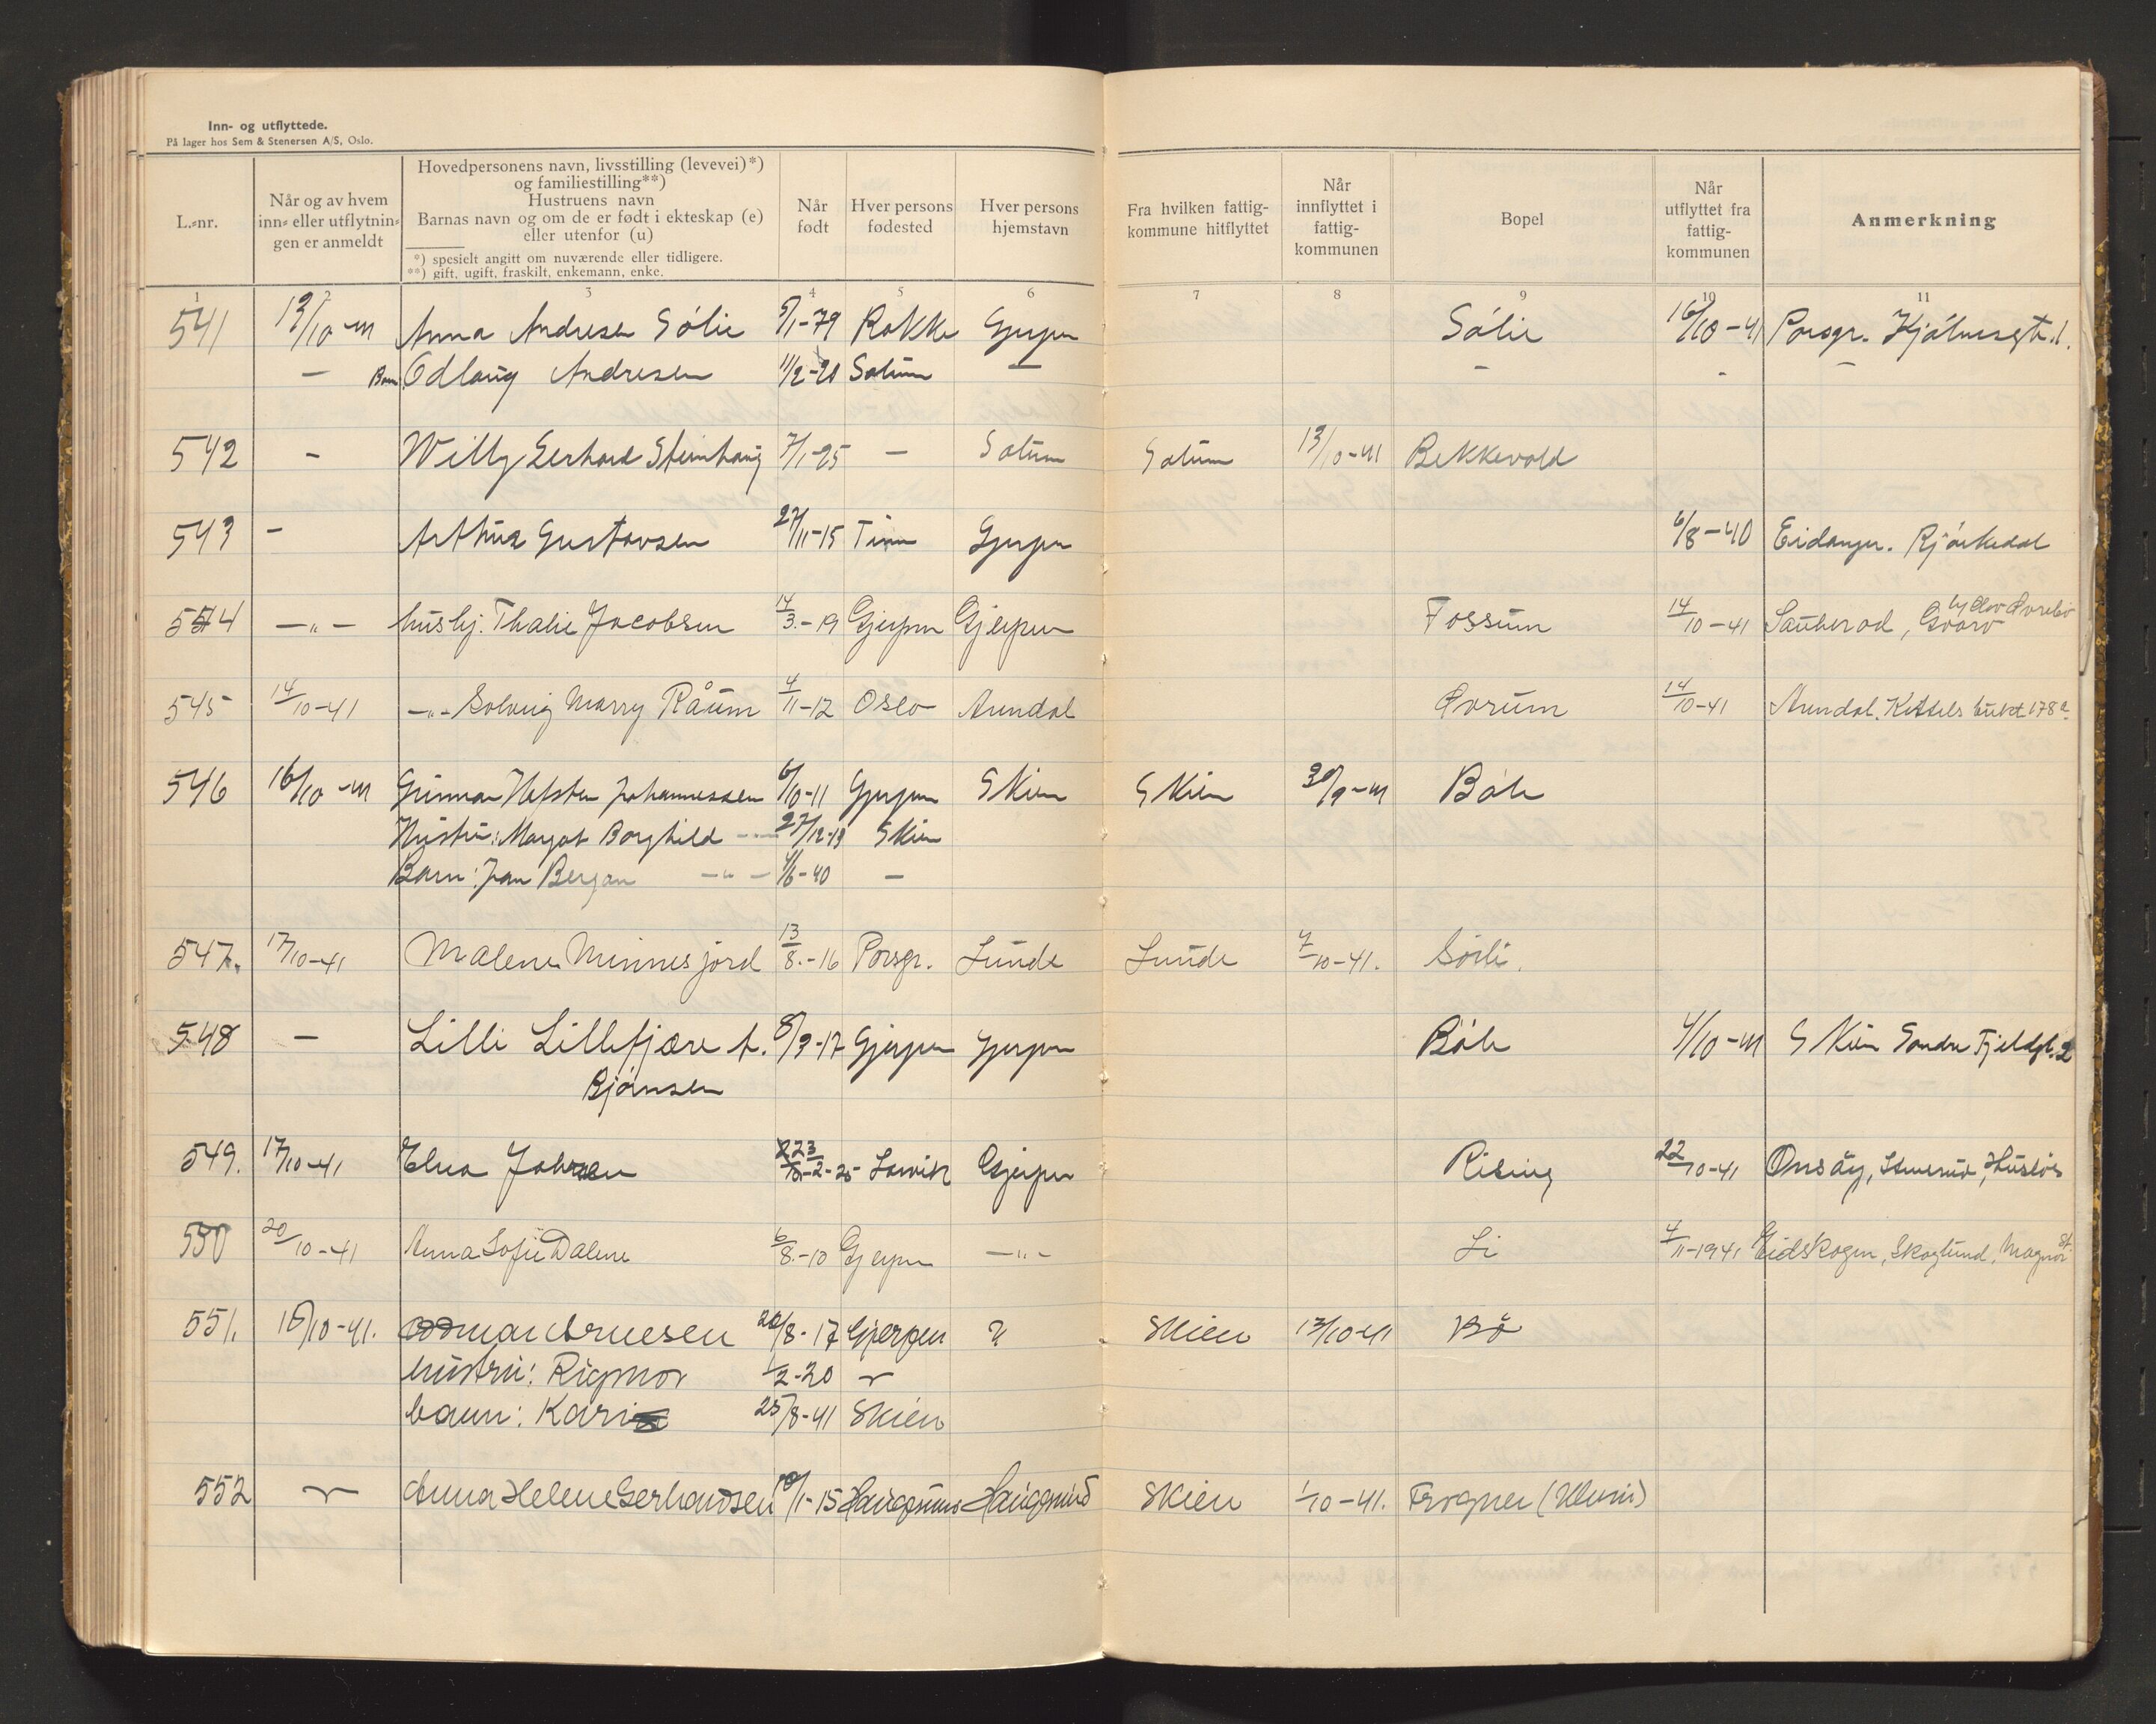 Inn- og utflyttede.
På lager hos Sem & Stenersen A/S, Oslo.
L.-nr.
Når og av hvem inn- eller utflytningen er anmeldt
Hovedpersonens navn, livsstilling (levevei)*)
og familiestilling**)
Hustruens navn
Barnas navn og om de er født i ekteskap (e)
eller utenfor (u)
*) spesielt angitt om nuværende eller tidligere.
**) gift, ugift, fraskilt, enkemann, enke.
Når født
Hver persons fødested
Hver persons hjemstavn
Fra hvilken fattigkommune hitflyttet
Når innflyttet i fattigkommunen
Bopel
Når utflyttet fra fattigkommunen
Anmerkning
1 2 3 4 5 6 7 8 9 10 11
541 13/10-41 Anna Andresen Sölie 5/1-79 Rakke Gjerpen Sölie 16/10-41 Porsgr. Hjölmesgt. 1.
— Barn Odlaug Andresen 11/2-20 Solum — - - —
542 - Willy Gerhard Steinhaug 7/1-25 — Solum Solum 13/10-41 Bekkevold
543 - Arthur Gustavsen 27/11-15 Tinn Gjerpen 6/8-40 Eidanger. Bjørkedal
544 —"— hushj. Thalie Jacobsen 14/3.-19 Gjerpen Gjerpen Fossum 14/10-41 Sauherad, Gvarv
545 14/10-41 -"- Solveig Marry Råum 4/11-12 Oslo Arendal Århus 14/10-41 Arendal. Kittelsbukt 178a
546 16/10-41 Gunnar Hefsten Johannessen 6/10-11 Gjerpen Skien Skien 30/9-41 Böle
Hustru: Margot Borghild -"- 27/12-13 Skien
Barn: Jan Bergan —"— 4/6-40 —
547. 17/10-41 Malene Minnesjord 13/8.-16 Porsgr. Lunde Lunde 7/10-41. Sörli.
548 — Lilli Lillefjære f. 8/3-17 Gjerpen Gjerpen Böle 4/10-41 Skien Søndre Fjeldgt. 2
Bjørnsen
549. 17/10-41 Elna Johnsen 23/2-25 Larvik Gjerpen Rising 22/10-41 Onsöy,
550 20/10-41 Anna Sofie Dalene 6/8.-10 Gjerpen —"- Li 4/11-1941 Eidskogen, Skoglund, Magnor St.
551. 16/10-41. Oddmar Arnesen 20/8-17 Gjerpen Skien 13/10-41 Bö
hustru: Rigmor 1/2-20
barn: Kari 25/8-41 Skien
552 Anna Helene Gerhardsen 10/1-15 Haugesund Haugesund Skien 1/10-41. Frogner (Ulvin)